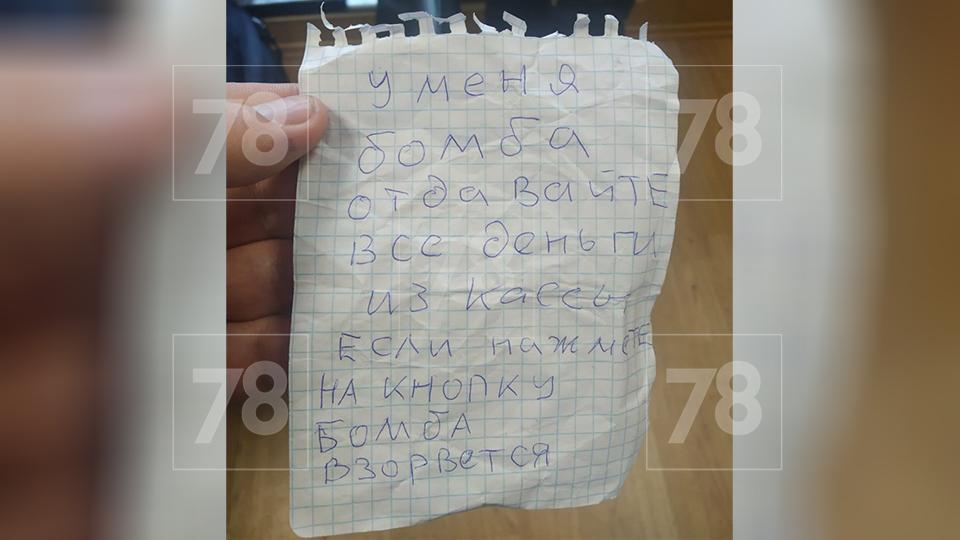 у меня
бомба
отдавайТЕ
все деньги
из кассы
Если нажмеТЕ
НА КНОПКУ
БОМБА
ВЗОРВетСЯ
78
78
78
78